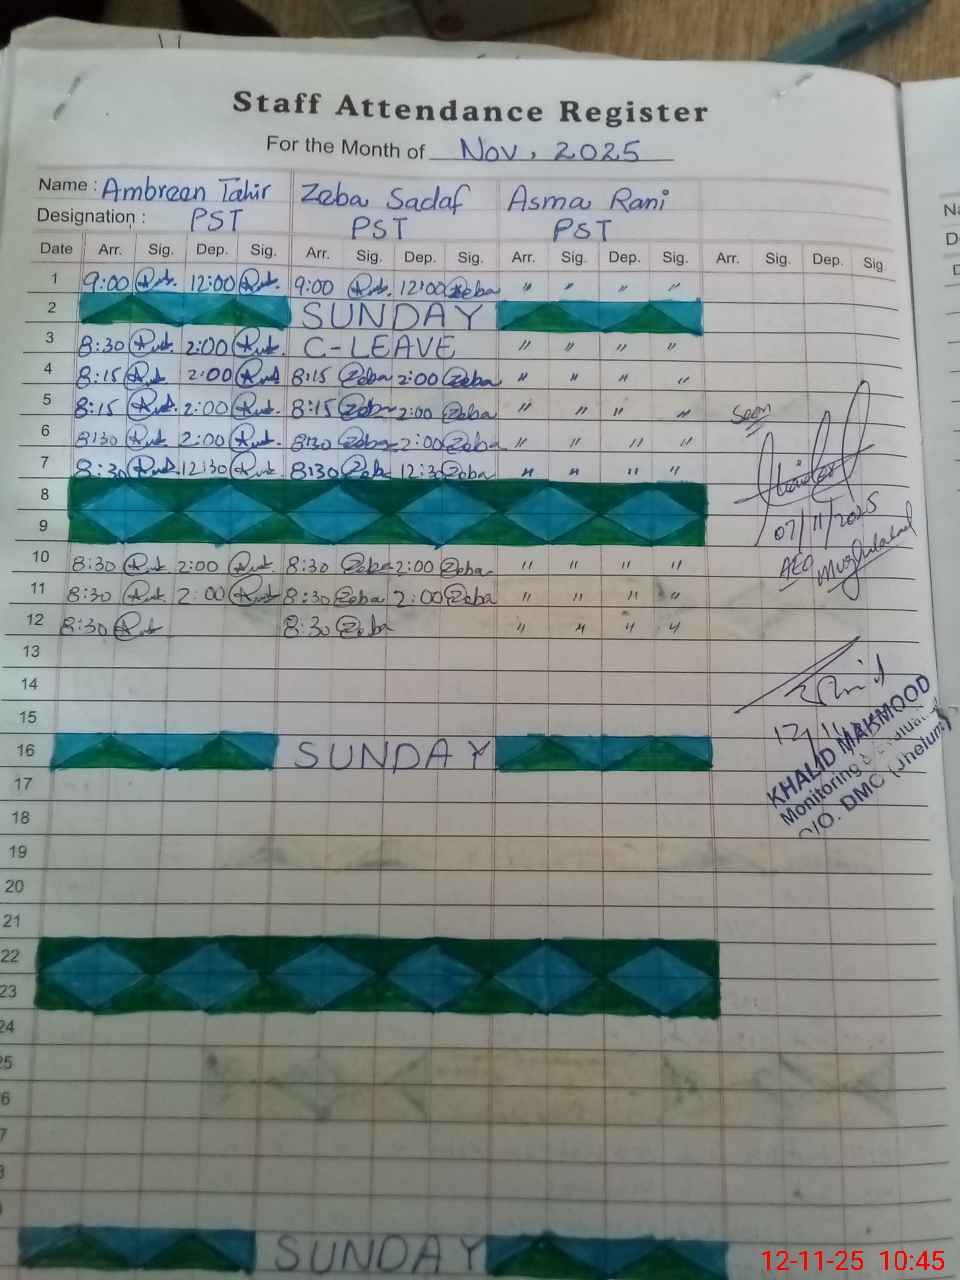 Staff Attendance Register
For the Month of Nov, 2025
Name : Ambreen Tahir Zeba Sadaf Asma Rani
Designation : PST PST PST
Date Arr. Sig. Dep. Sig. Arr. Sig. Dep. Sig. Arr. Sig. Dep. Sig. Arr. Sig. Dep. Sig.
1 9:00 12:00 9:00 12:00 Zeba " " " "
2 SUNDAY
3 8:30 2:00 C-LEAVE " " " "
4 8:15 2:00 8:15 Zeba 2:00 Zeba " " " "
5 8:15 2:00 8:15 Zeba 2:00 Zeba " " " "
Seen
6 8:30 2:00 8:30 Zeba 2:00 Zeba " " " "
7 8:30 12:30 8:30 Zeba 12:30 Zeba " " " "
8
07/11/2025
9
AEO
10 8:30 2:00 8:30 Zeba 2:00 Zeba " " " "
11 8:30 2:00 8:30 Zeba 2:00 Zeba " " " "
12 8:30 8:30 Zeba " " " "
13
14
15
16 SUNDAY
KHALID MAKMOOD
Monitoring &
O/O. DMO (Jhelum)
17
18
19
20
21
22
23
24
5
6
7
SUNDAY
12-11-25 10:45